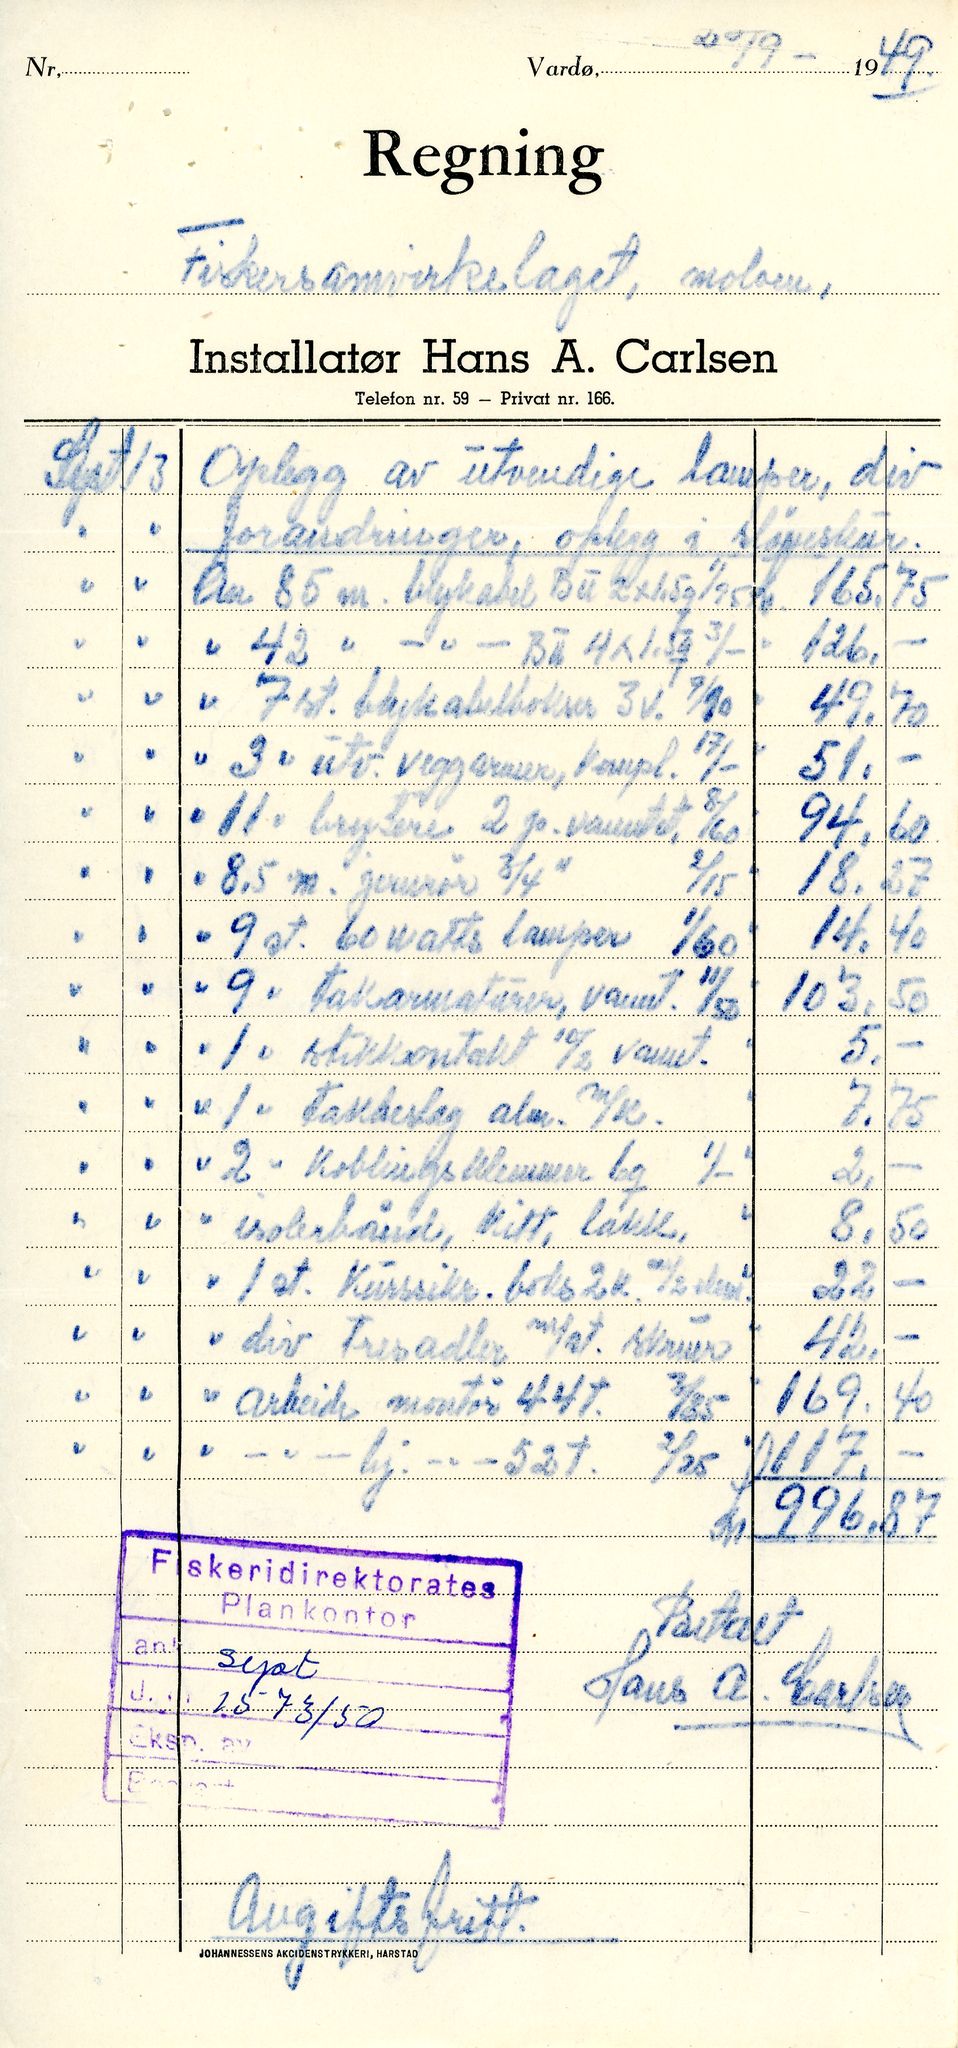 Nr,
Vardø, 20/9 – 1949.
Regning
Fiskersamvirkelaget, moloen,
Installatør Hans A. Carlsen
Telefon nr. 59 — Privat nr. 166.
Sept 13 Oplegg av utvendige lamper, div
" " forandringer, oplegg i sløyeskur.
" " An 85 m. blykabel BU 2x1.5q 1/95 kr. 165.75
" " " 42 " – " – BU 4x1.5q 3/– " 126.–
" " " 7 st. blykabelbokser 3 v. 7/10 " 49.70
" " " 3 " utv. veggarmer, kompl. 17/– " 51.–
" " " 11 " brytere 2 p. vanntet, 8/60 94.60
" " " 8,5 m. jernrør 3/4" 2/15 " 18.27
" " " 9 st. 60 watts lamper 1/60 " 14.40
" " " 9 " takarmaturer, vannt. 11/50 103.50
" " " 1 " stikkontakt 10/2 vannt. " 5.–
" " " 1 " takbeslag alm. m/k. " 7.75
" " " 2 " Koblingsklemmer bq 1/– " 2.–
" " " isolerbånd, kitt, lakk, " 8.50
" " " 1 st. Kurssikr. boks 2 k. " 22 –
" " " div Tresadler m/st. skruer " 42.–
" " " arbeide montør 44 t. 3/85 " 169.40
" " " – " – hj. – " – 52 t. 2/25 " 117.–
kr 996.87
Fiskeridirektorates
Plankontor
ank sept
J. nr 2573/50
Eksp. av
Betalt
Hans A. Carlsen
Avgiftsfritt.
JOHANNESSENS AKCIDENSTRYKKERI, HARSTAD